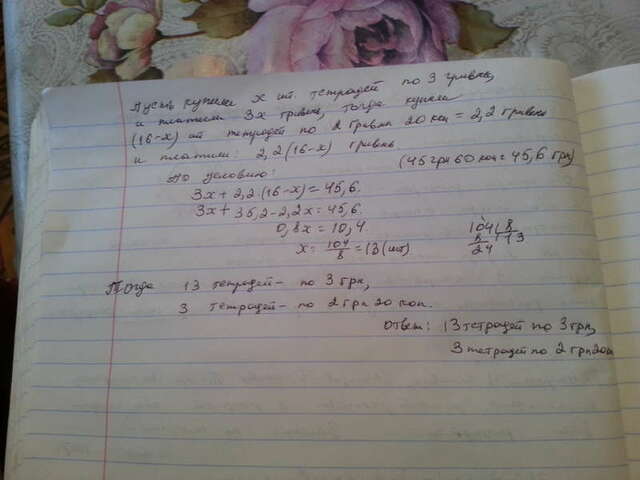 Пусть купили х шт. тетрадей по 3 гривны,
и платили 3х гривны, тогда купили
(16-х) шт тетрадей по 2 гривны 20 коп = 2,2 гривны
и платили: 2,2(16-х) гривны
(45 грн 60 коп = 45,6 грн)
По условию:
3х+2,2(16-х)=45,6.
3х+35,2-2,2х=45,6.
0,8х=10,4
х= 104/8 =13(шт)
104 8
8 13
24
Тогда 13 тетрадей - по 3 грн,
3 тетрадей - по 2 грн 20 коп.
Ответ: 13 тетрадей по 3 грн,
3 тетрадей по 2 грн 20